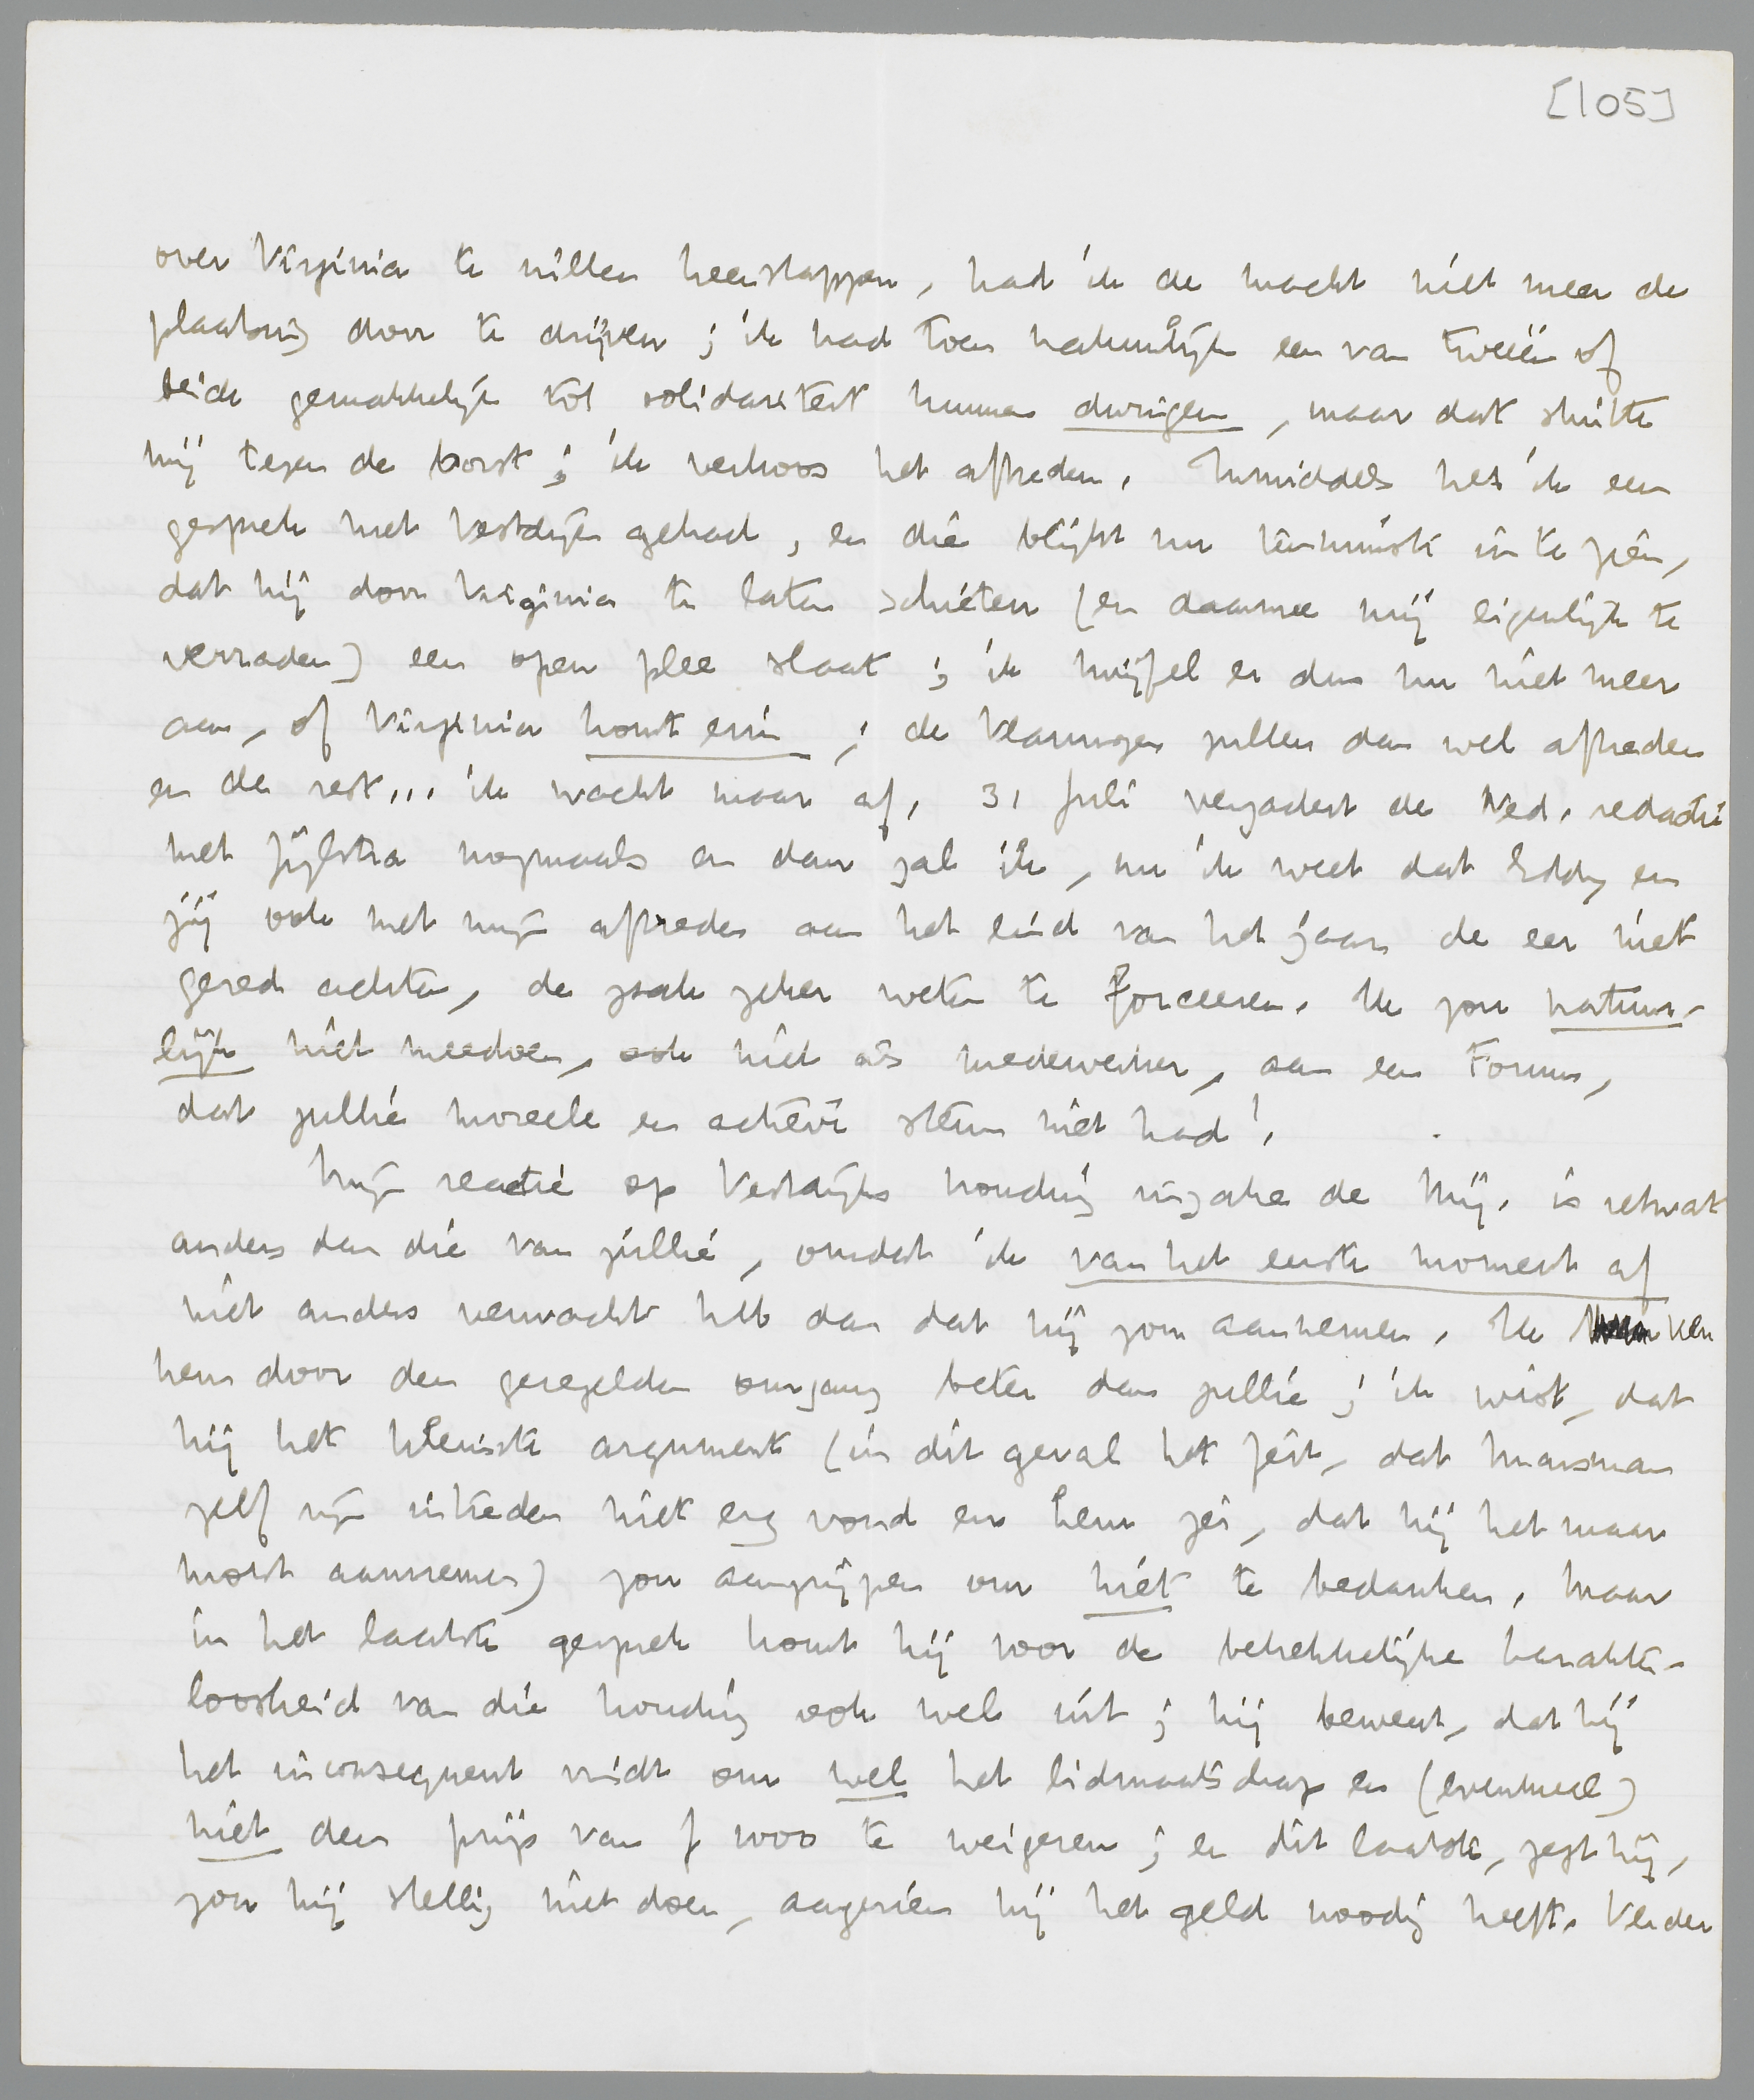 [105]
over Virginia te willen heenstappen, had ik de macht niet meer de
plaatsing door te drijven; ik had toen natuurlijk een van tweeën of
beide gemakkelijk tot solidariteit kunnen dwingen, maar dat stuitte
mij tegen de borst; ik verkoos het aftreden. Inmiddels heb ik een
gesprek met Vestdijk gehad, en die blijkt nu tenminste in te zien,
dat hij door Virginia te laten schieten (en daarmee mij eigenlijk te
verraden) een open plee slaat; ik twijfel er dus nu niet meer
aan, of Virginia komt erin; de Vlamingen zullen dan wel aftreden
en de rest... ik wacht maar af. 31 Juli vergadert de Ned. redactie
met Zijlstra nogmaals en dan zal ik, nu ik weet dat Eddy en
jij ook met mijn aftreden aan het eind van het jaar de eer niet
gered achten, de zaak zeker weten te forceeren. Ik zou natuur-
lijk niet meedoen, ook niet als medewerker, aan een Forum,
dat jullie moreele en actieve steun niet had!
Mijn reactie op Vestdijks houding inzake de Mij. is ietwat
anders dan die van jullie, omdat ik van het eerste moment af
niet anders verwacht heb dan dat hij zou aannemen. Ik ken
hem door den geregelden omgang beter dan jullie; ik wist, dat
hij het kleinste argument (in dit geval het feit, dat Marsman
zelf zijn intreden niet erg vond en hem zei, dat hij het maar
moest aannemen) zou aangrijpen om niet te bedanken. Maar
in het laatste gesprek komt hij voor de betrekkelijke karakter-
loosheid van die houding ook wel uit; hij beweert, dat hij
het inconsequent vindt om wel het lidmaatschap en (eventueel)
niet den prijs van f 1000 te weigeren; en dit laatste, zegt hij,
zou hij stellig niet doen, aangezien hij het geld noodig heeft. Verder